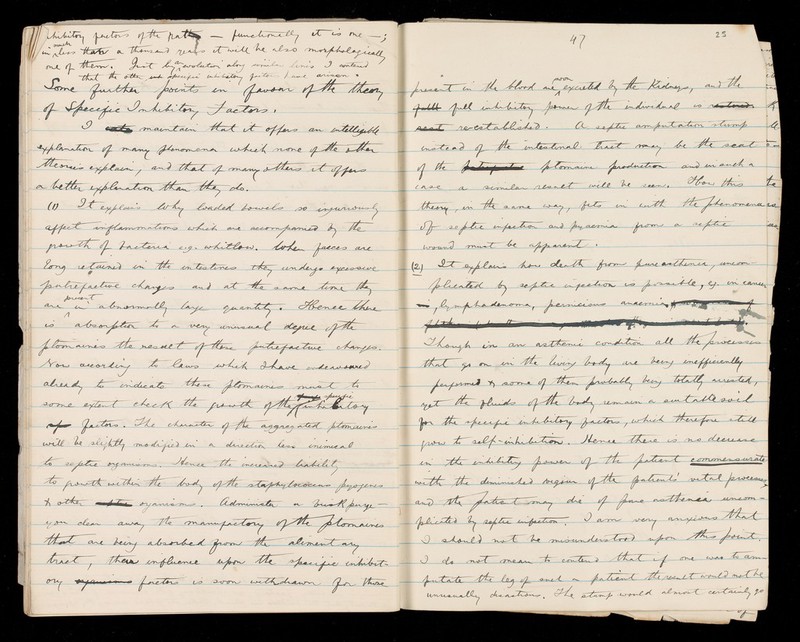 inhibitory factors of the path — functionally it is one —;
in much less than a thousand years it will be also morphologically
one of them. Just by evolution along similar lines I contend
that the other specific inhibitory factors have arisen.
Some further points in favour of the theory
of Specific Inhibitory Factors.
I maintain that it offers an intelligible
explanation of many phenomena which none of the other
theories explain, and that of many others it offers
a better explanation than they do.
(1) It explains why loaded bowels so injuriously
affect inflammations which are accompanied by the
growth of bacteria e.g. whitlow. When faeces are
long retained in the intestines they undergo excessive
putrefactive changes and at the same time they
are present in abnormally large quantity. Hence there
is absorption to a very unusual degree of the
ptomaines the result of these putrefactive changes.
Now according to laws which I have endeavoured
already to indicate these ptomaines must to
some extent check the growth of the specific inhibitory
factors. The character of the aggregated ptomaines
will be slightly modified in a direction less inimical
to septic organisms. Hence the increased liability
to growth within the body of the staphylococcus pyogenes
& other organisms. Administer a brisk purge —
you clear away the manufactory of the ptomaines
that are being absorbed from the alimentary
tract, their influence upon the specific inhibit-
ory factors is soon withdrawn for those
47
25
present in the blood are soon excreted by the Kidneys, and the
full inhibitory power of the individual is
re-established. A septic amputation stump
instead of the intestinal tract may be the seat
of the ptomaine production and in such a
case a similar result will be seen. How this
theory, in the same way, fits in with the phenomena
of septic infection and pyaemia from a septic
wound must be apparent.
(2) It explains how death from pure asthenia, uncom-
plicated by septic infection is possible, e.g. in cancer
, lymphadenoma, pernicious anaemia
Though in an asthenic condition all the processes
that go on in the living body are being inefficiently
performed & some of them probably being totally arrested,
yet the fluids of the body remain a suitable soil
for the specific inhibitory factors, which therefore still
grow to self-inhibition. Hence there is no decrease
in the inhibitory power of the patient commensurate
with the diminished vigour of the patient's vital processes
and the patient may die of pure asthenia uncom-
plicated by septic infection. I am very anxious that
I should not be misunderstood upon this point.
I do not mean to contend that if one was to am-
putate the leg of such a patient the result would not be
unusually disastrous. The stump would almost certainly go